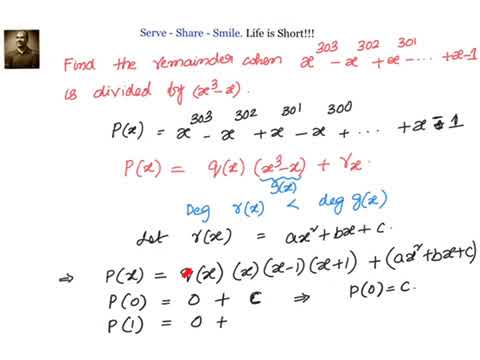 Serve - Share - Smile. Life is Short!!!
Find the remainder when x³⁰³ - x³⁰² + x³⁰¹ - ... + x - 1
is divided by (x³-x).
P(x) = x³⁰³ - x³⁰² + x³⁰¹ - x³⁰⁰ + ... + x - 1
P(x) = q(x) (x³-x) + rx.
g(x)
Deg r(x) < deg g(x)
Let r(x) = ax²+bx+c.
⇒ P(x) = q(x) (x) (x-1) (x+1) + (ax²+bx+c)
P(0) = 0 + c ⇒ P(0) = c.
P(1) = 0 +